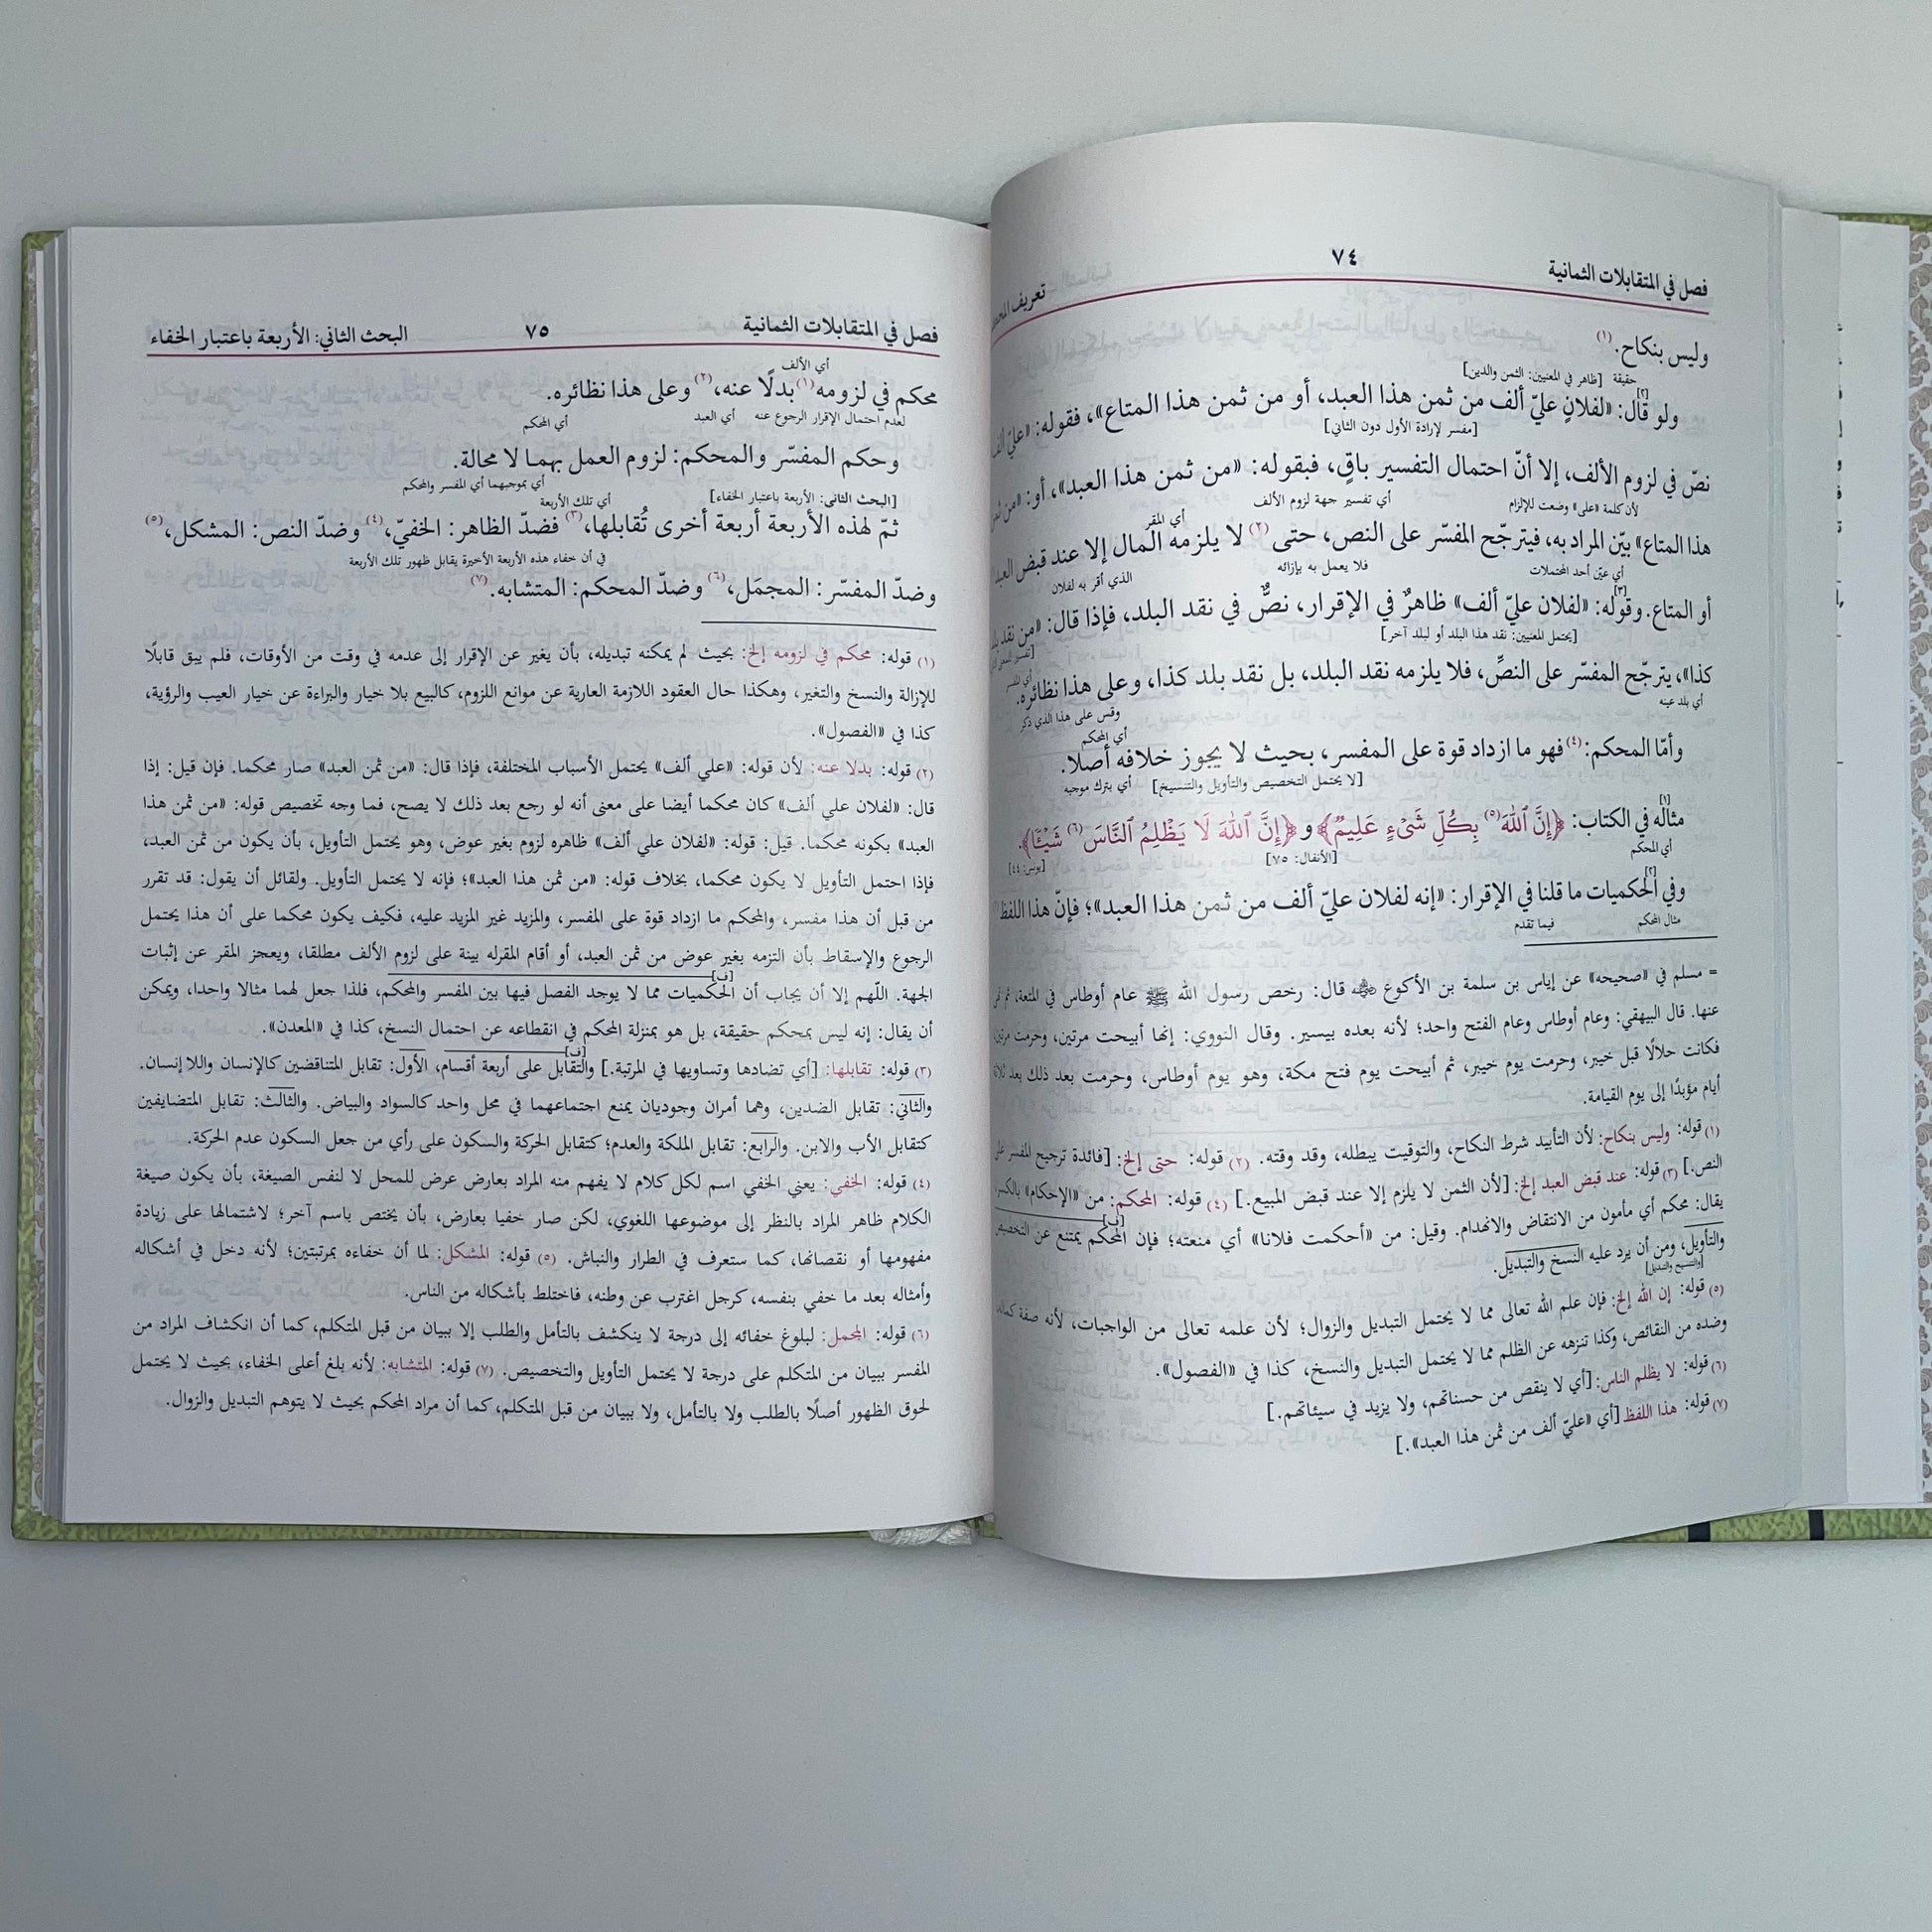 فصل في المتقابلات الثمانية
٧٤
وليس بنكاح.(١)
حقيقة [ظاهر في المعنيين: الثمن والدين]
ولو قال:[٢] «لفلانٍ عليّ ألف من ثمن هذا العبد، أو من ثمن هذا المتاع»، فقوله: «عليّ
[مفسر لإرادة الأول دون الثاني]
نصّ في لزوم الألف، إلا أنّ احتمال التفسير باقٍ، فبقوله: «من ثمن هذا العبد»، أو:
لأن كلمة «على» وضعت للإلزام أي تفسير جهة لزوم الألف
أي المقر
هذا المتاع» بيّن المراد به، فيترجّح المفسّر على النص، حتى(٢) لا يلزمه المال إلا عند قبض
أي عيّن أحد المحتملات فلا يعمل به بإزائه الذي أقر به لفلان
أو المتاع. وقوله:[٣] «لفلان عليّ ألف» ظاهرٌ في الإقرار، نصٌّ في نقد البلد، فإذا قال: «من نقد
[يحتمل المعنيين: نقد هذا البلد أو لبلد آخر]
كذا»، يترجّح المفسّر على النصِّ، فلا يلزمه نقد البلد، بل نقد بلد كذا، وعلى هذا نظائره.
أي بلد عينه وقس على هذا الذي ذكر
أي المحكم
وأمّا المحكم:(٤) فهو ما ازداد قوة على المفسر، بحيث لا يجوز خلافه أصلا.
[لا يحتمل التخصيص والتأويل والتنسيخ] أي بترك موجبه
مثاله[١] في الكتاب: ﴿إِنَّ ٱللَّهَ(٥) بِكُلِّ شَىْءٍ عَلِيمٌ﴾ و ﴿إِنَّ ٱللَّهَ لَا يَظْلِمُ ٱلنَّاسَ(٦) شَيْـًٔا﴾.
أي المحكم [الأنفال: ٧٥] [يونس: ٤٤]
وفي الحكميات[٢] ما قلنا في الإقرار: «إنه لفلان عليّ ألف من ثمن هذا العبد»؛ فإنّ هذا اللفظ
مثال المحكم فيما تقدم
= مسلم في «صحيحه» عن إياس بن سلمة بن الأكوع ﵁ قال: رخص رسول الله ﷺ عام أوطاس في المتعة،
عنها. قال البيهقي: وعام أوطاس وعام الفتح واحد؛ لأنه بعده بيسير. وقال النووي: إنها أبيحت مرتين، وحرمت
فكانت حلالًا قبل خيبر، وحرمت يوم خيبر، ثم أبيحت يوم فتح مكة، وهو يوم أوطاس، وحرمت بعد ذلك بعد
أيام مؤبدًا إلى يوم القيامة.
(١) قوله: وليس بنكاح: لأن التأبيد شرط النكاح، والتوقيت يبطله، وقد وقته. (٢) قوله: حتى إلخ: [فائدة ترجيح المفسر
النص.] (٣) قوله: عند قبض العبد إلخ: [لأن الثمن لا يلزم إلا عند قبض المبيع.] (٤) قوله: المحكم: من «الإحكام»
يقال: محكم أي مأمون من الانتقاض والانهدام. وقيل: من «أحكمت فلانا» أي منعته؛ فإن المحكم[ف] يمتنع عن
والتأويل، ومن أن يرد عليه النسخ والتبديل.
[والتنسيخ والتبديل]
(٥) قوله: إن الله إلخ: فإن علم الله تعالى مما لا يحتمل التبديل والزوال؛ لأن علمه تعالى من الواجبات، لأنه صفة
وضده من النقائص، وكذا تنزهه عن الظلم مما لا يحتمل التبديل والنسخ، كذا في «الفصول».
(٦) قوله: لا يظلم الناس: [أي لا ينقص من حسناتهم، ولا يزيد في سيئاتهم.]
(٧) قوله: هذا اللفظ [أي «عليّ ألف من ثمن هذا العبد».]
فصل في المتقابلات الثمانية ٧٥ البحث الثاني: الأربعة باعتبار الخفاء
أي الألف
محكم في لزومه(١) بدلًا عنه،(٢) وعلى هذا نظائره.
لعدم احتمال الإقرار الرجوع عنه أي العبد أي المحكم
وحكم المفسّر والمحكم: لزوم العمل بهما لا محالة.
أي بموجبهما أي المفسر والمحكم
[البحث الثاني: الأربعة باعتبار الخفاء] أي تلك الأربعة
ثمّ لهذه الأربعة أربعة أخرى تُقابلها،(٣) فضدّ الظاهر: الخفيّ،(٤) وضدّ النص: المشكل،(٥)
في أن خفاء هذه الأربعة الأخيرة يقابل ظهور تلك الأربعة
وضدّ المفسّر: المجمَل،(٦) وضدّ المحكم: المتشابه.(٧)
(١) قوله: محكم في لزومه إلخ: بحيث لم يمكنه تبديله، بأن يغير عن الإقرار إلى عدمه في وقت من الأوقات، فلم يبق قابلًا
للإزالة والنسخ والتغير، وهكذا حال العقود اللازمة العارية عن موانع اللزوم، كالبيع بلا خيار والبراءة عن خيار العيب والرؤية،
كذا في «الفصول».
(٢) قوله: بدلا عنه: لأن قوله: «علي ألف» يحتمل الأسباب المختلفة، فإذا قال: «من ثمن العبد» صار محكما. فإن قيل: إذا
قال: «لفلان علي ألف» كان محكما أيضا على معنى أنه لو رجع بعد ذلك لا يصح، فما وجه تخصيص قوله: «من ثمن هذا
العبد» بكونه محكما. قيل: قوله: «لفلان علي ألف» ظاهره لزوم بغير عوض، وهو يحتمل التأويل، بأن يكون من ثمن العبد،
فإذا احتمل التأويل لا يكون محكما، بخلاف قوله: «من ثمن هذا العبد»؛ فإنه لا يحتمل التأويل. ولقائل أن يقول: قد تقرر
من قبل أن هذا مفسر، والمحكم ما ازداد قوة على المفسر، والمزيد غير المزيد عليه، فكيف يكون محكما على أن هذا يحتمل
الرجوع والإسقاط بأن التزمه بغير عوض من ثمن العبد، أو أقام المقرله بينة على لزوم الألف مطلقا، ويعجز المقر عن إثبات
الجهة. اللّهم إلا أن يجاب أن الحكميات[ف] مما لا يوجد الفصل فيها بين المفسر والمحكم، فلذا جعل لهما مثالا واحدا، ويمكن
أن يقال: إنه ليس بمحكم حقيقة، بل هو بمنزلة المحكم في انقطاعه عن احتمال النسخ، كذا في «المعدن».
(٣) قوله: تقابلها: [أي تضادها وتساويها في المرتبة.] والتقابل[ف] على أربعة أقسام، الأول: تقابل المتناقضين كالإنسان واللاإنسان.
والثاني: تقابل الضدين، وهما أمران وجوديان يمنع اجتماعهما في محل واحد كالسواد والبياض. والثالث: تقابل المتضايفين
كتقابل الأب والابن. والرابع: تقابل الملكة والعدم؛ كتقابل الحركة والسكون على رأي من جعل السكون عدم الحركة.
(٤) قوله: الخفي: يعني الخفي اسم لكل كلام لا يفهم منه المراد بعارض عرض للمحل لا لنفس الصيغة، بأن يكون صيغة
الكلام ظاهر المراد بالنظر إلى موضوعها اللغوي، لكن صار خفيا بعارض، بأن يختص باسم آخر؛ لاشتمالها على زيادة
مفهومها أو نقصانها، كما ستعرف في الطرار والنباش. (٥) قوله: المشكل: لما أن خفاءه بمرتبتين؛ لأنه دخل في أشكاله
وأمثاله بعد ما خفي بنفسه، كرجل اغترب عن وطنه، فاختلط بأشكاله من الناس.
(٦) قوله: المجمل: لبلوغ خفائه إلى درجة لا ينكشف بالتأمل والطلب إلا ببيان من قبل المتكلم، كما أن انكشاف المراد من
المفسر ببيان من المتكلم على درجة لا يحتمل التأويل والتخصيص. (٧) قوله: المتشابه: لأنه بلغ أعلى الخفاء، بحيث لا يحتمل
لحوق الظهور أصلًا بالطلب ولا بالتأمل، ولا ببيان من قبل المتكلم، كما أن مراد المحكم بحيث لا يتوهم التبديل والزوال.